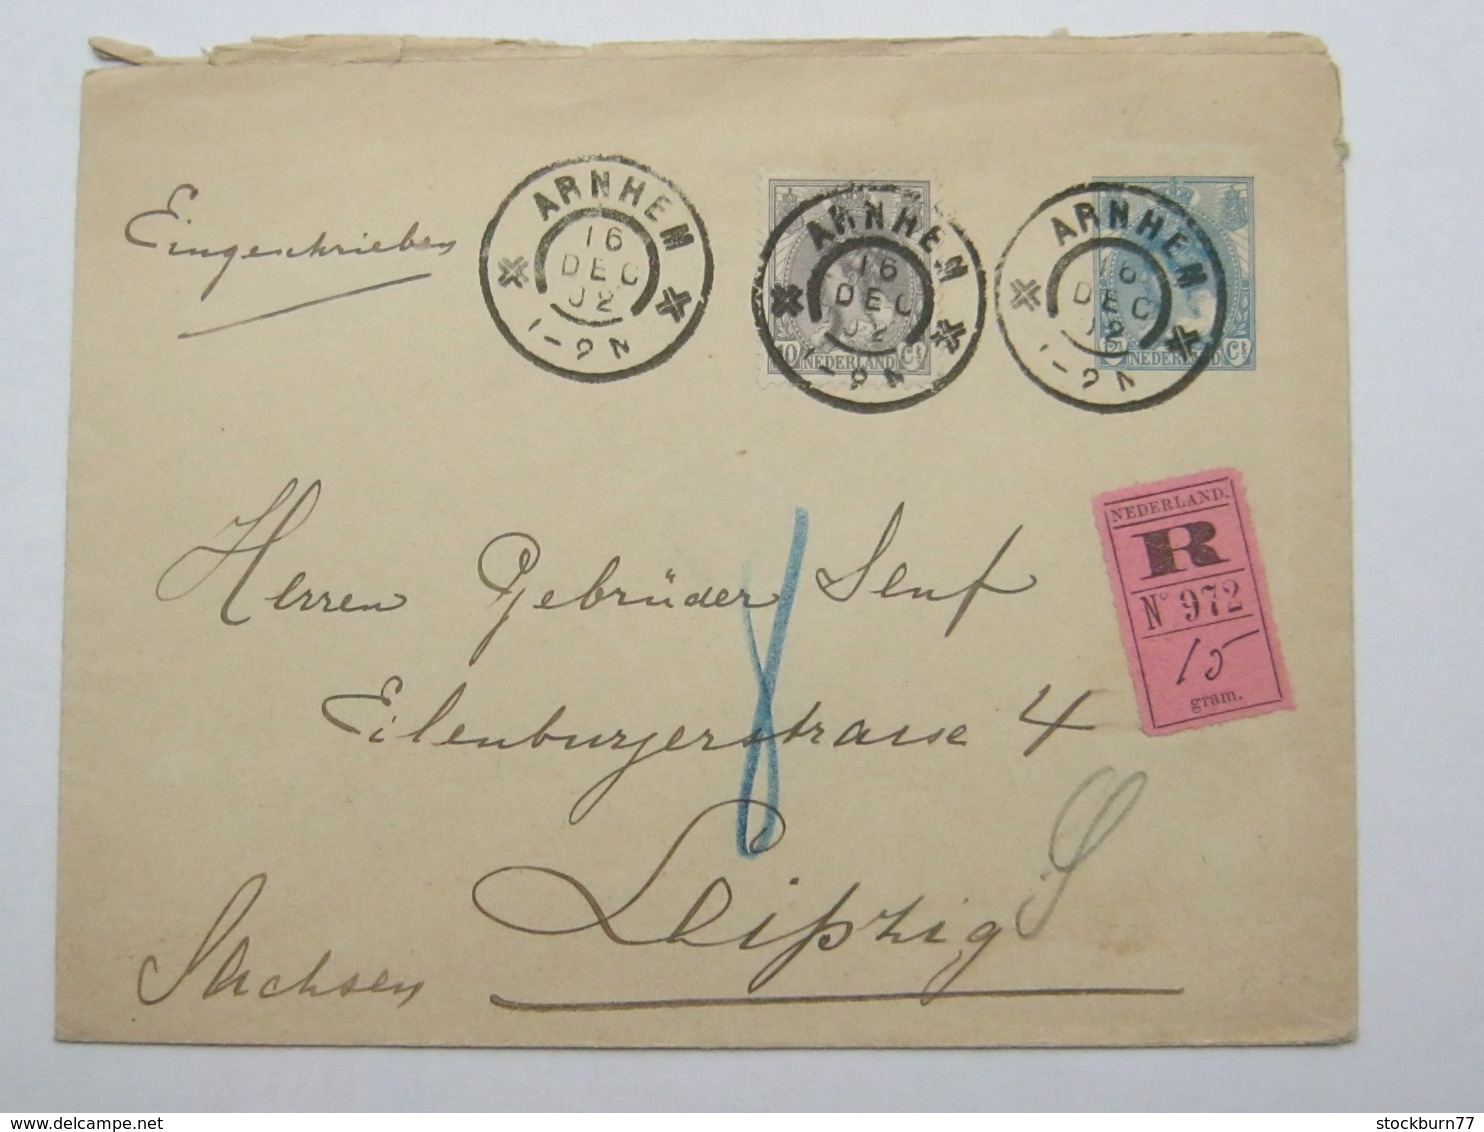 Eingeschrieben
ARNHEM
16
DEC
02
1-2N
ARNHEM
16
DEC
02
1-2N
10 NEDERLAND Ct
ARNHEM
16
DEC
1-2N
NEDERLAND Ct
NEDERLAND.
R
N° 972
15
gram.
Herren Gebrüder Senf
Eilenburgerstrasse 4
Leipzig
Sachsen
stockburn77